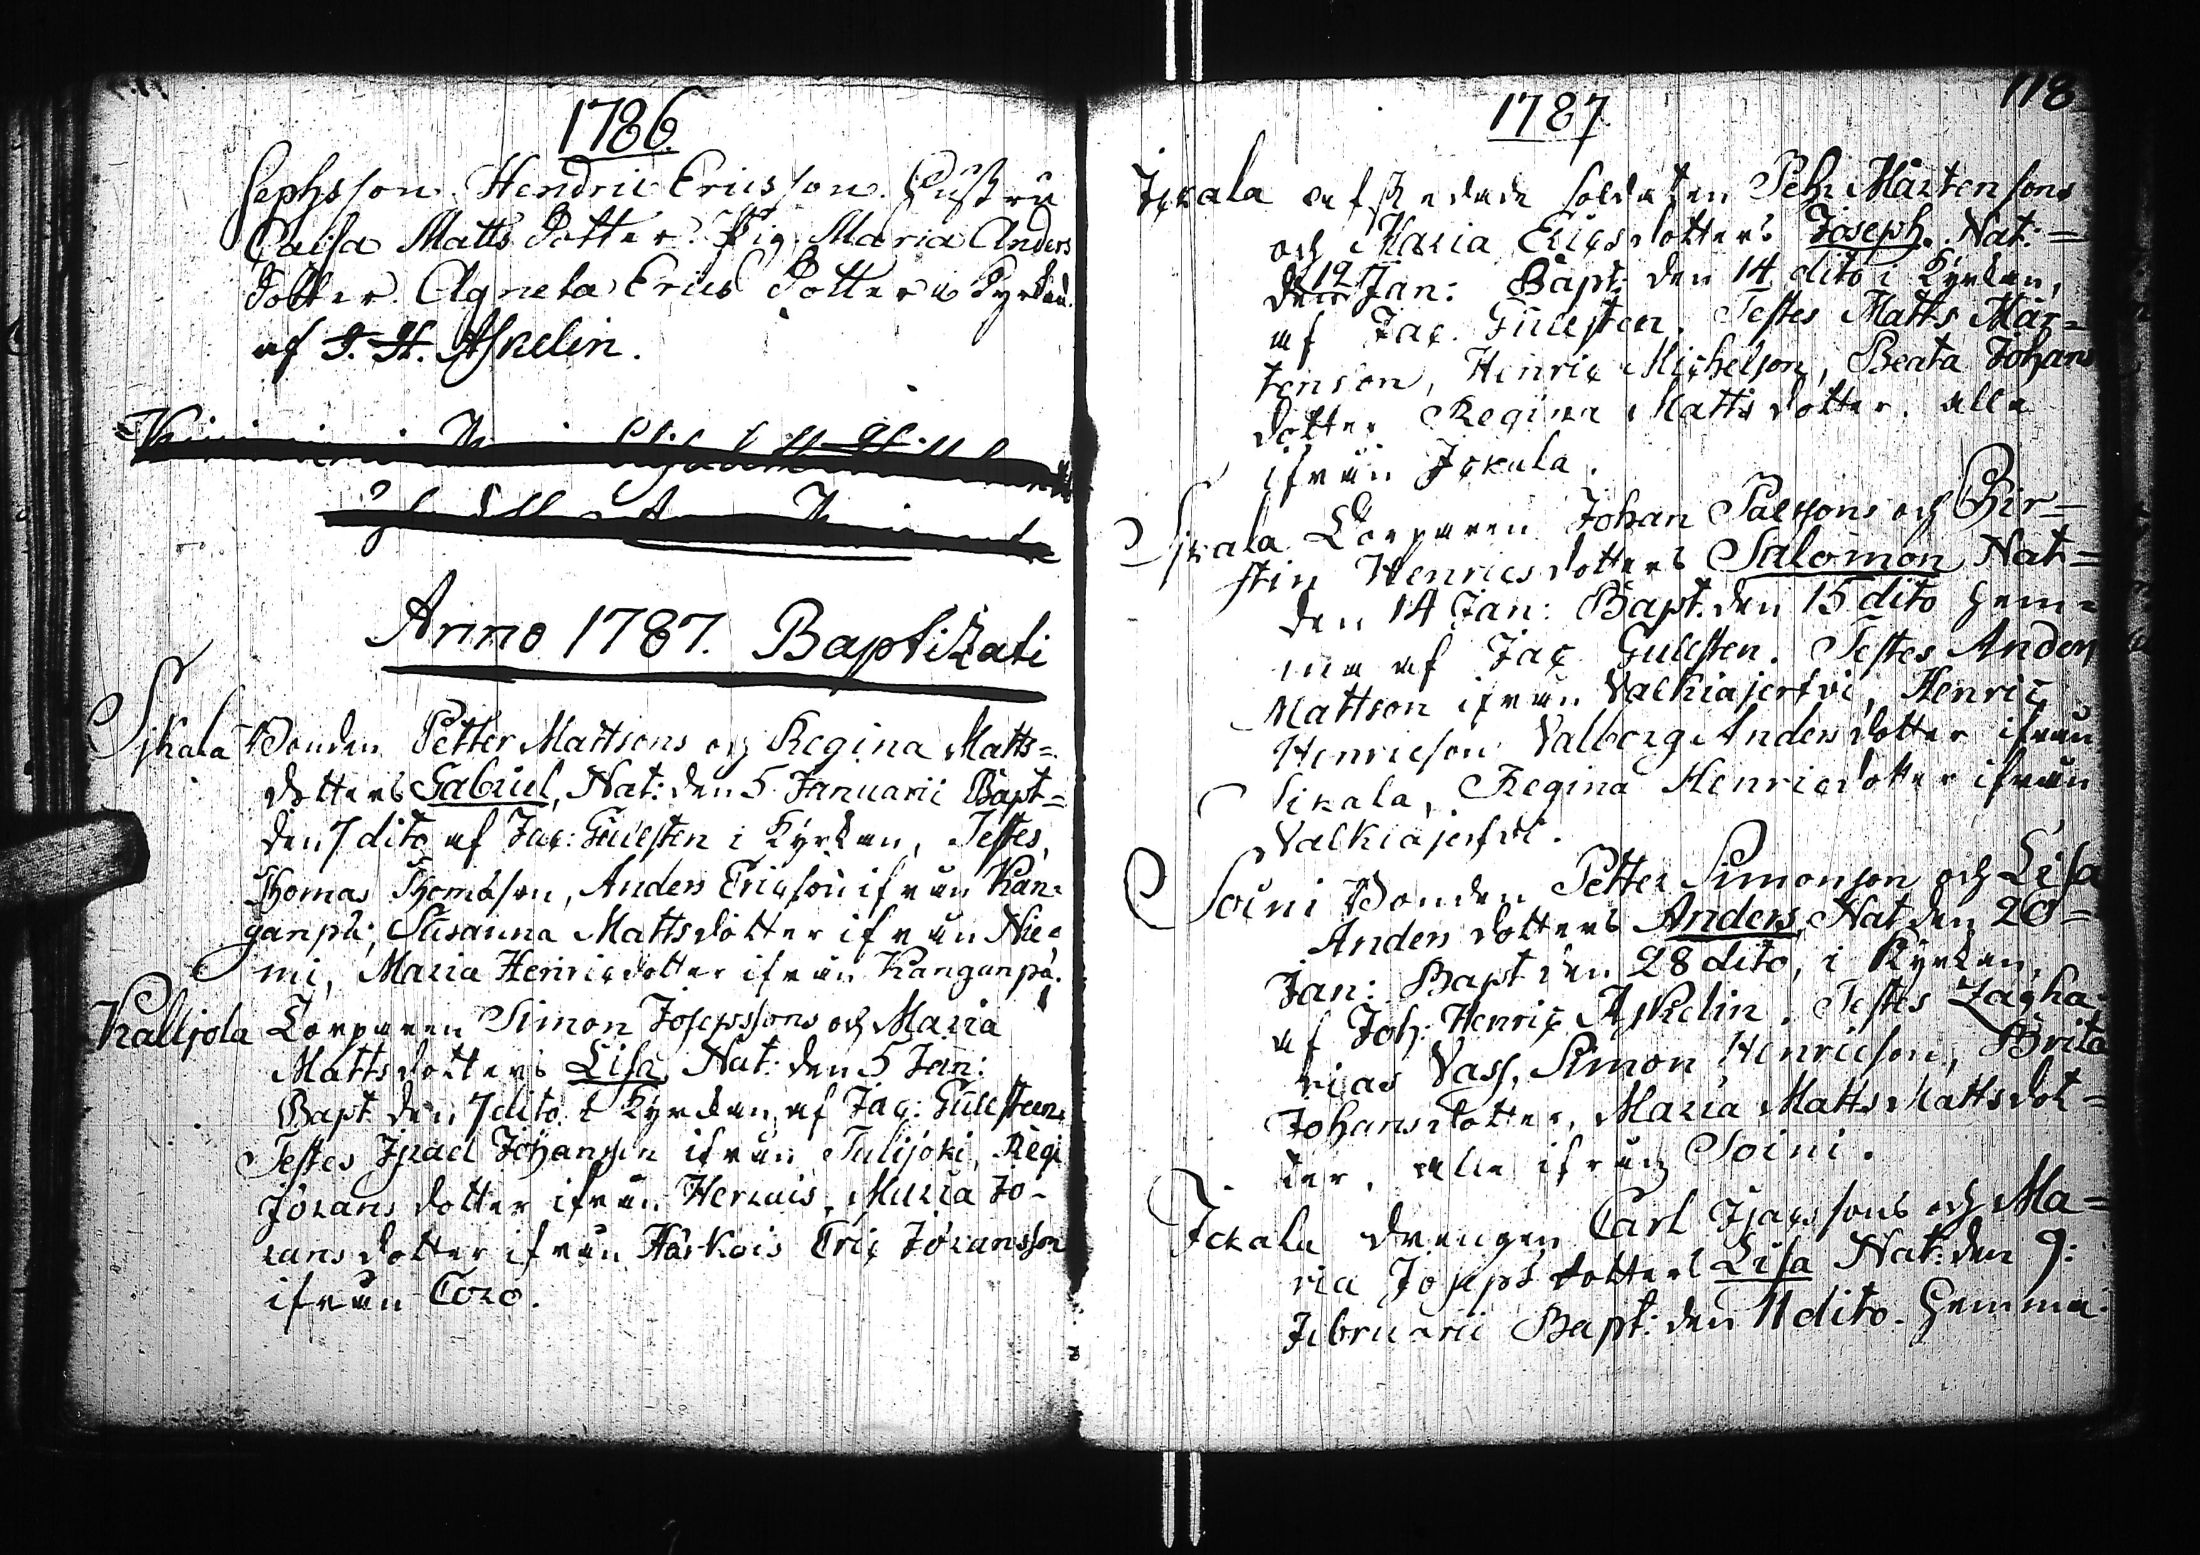 1786.
sephsson. Hendric Ericsson. Hustru
Caisa Matts Dotter. Pig. Maria Anders
Dotter. Agneta Erics Dotter i Kyrkan.
af J. H. Askelin.
Anno 1787. Baptizati
Sikala Bonden Petter Mattsons och Regina Matts=
dotters Gabriel, Nat: den 5 Januarii Bapt=
den 7 dito af Jac: Gullsten i Kyrkan, Testes,
Thomas Thomasson, Anders Ericson ifrån Kan=
ganpä; Susanna Mattsdotter ifrån Nie=
mi, Maria Henricdotter ifrån Kanganpä.
Kalliola Torparen Simon Josepssons och Maria
Mattsdotters Lisa, Nat: den 5 Jan:
Bapt. den 7 dito i Kyrkan af Jac: Gullsten.
Testes Israel Johansson ifrån Tulijoki, Regi
Jörans dotter ifrån Herkois, Maria Jö-
ransdotter ifrån Härkois Eric Jöransson
ifrån Coro.
118
1787
Ickala afskedade soldaten Pehr Mårtensons
och Maria Ericsdotters Joseph. Nat: =
den 12 Jan: Bapt: den 14 dito i Kyrkan,
af Jac. Gullsten. Testes Matts Mår=
tenson, Henric Michelson, Beata Johans
dotter Regina Mattsdotter. alla
ifrån Ickala.
Sikala Torparen Johan Palssons och Chir=
stin Henricsdotters Salomon Nat=
den 14 Jan: Bapt. den 15 dito hem=
ma af Jac Gullsten. Testes Anders
Mattson ifrån Valkiajerfvi, Henric
Henricson Valborg Andersdotter ifrån
Sikala, Regina Henricdotter ifrån
Valkiajerfvi.
Soini Bonden Petter Simonson och Lisa
Anders dotters Anders, Nat den 26=
Jan: Bapt den 28 dito, i Kyrkan,
af Joh: Henric Askelin. Testes Zacha-
rias Vass, Simon Henricson, Brita
Johansdotter, Maria Matts Mattsdot=
ter, alla ifrån Soini.
Ickala drengen Carl Isacssons och Ma=
ria Joseps dotters Lisa Nat: den 9:
Februarii Bapt: den 11 dito. hemma